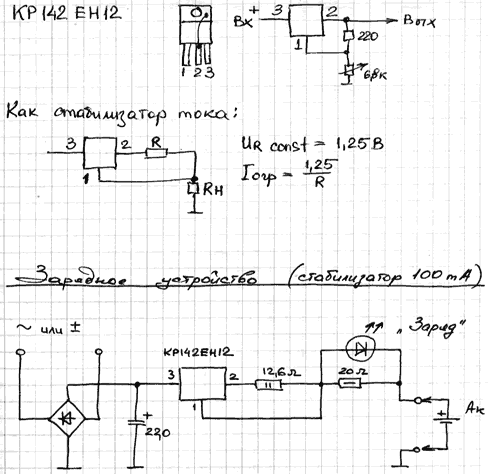 КР142 ЕН12
1 2 3
Вх + 3 2 Вых
1
220
6,8к
Как стабилизатор тока:
3 2 R
1
Rн
UR const = 1,25В
Iогр = 1,25/R
Зарядное устройство (стабилизатор 100 mA)
~ или ±
КР142ЕН12
3 2
1
12,6Ω
20Ω
„Заряд"
+
22,0
+
Ак